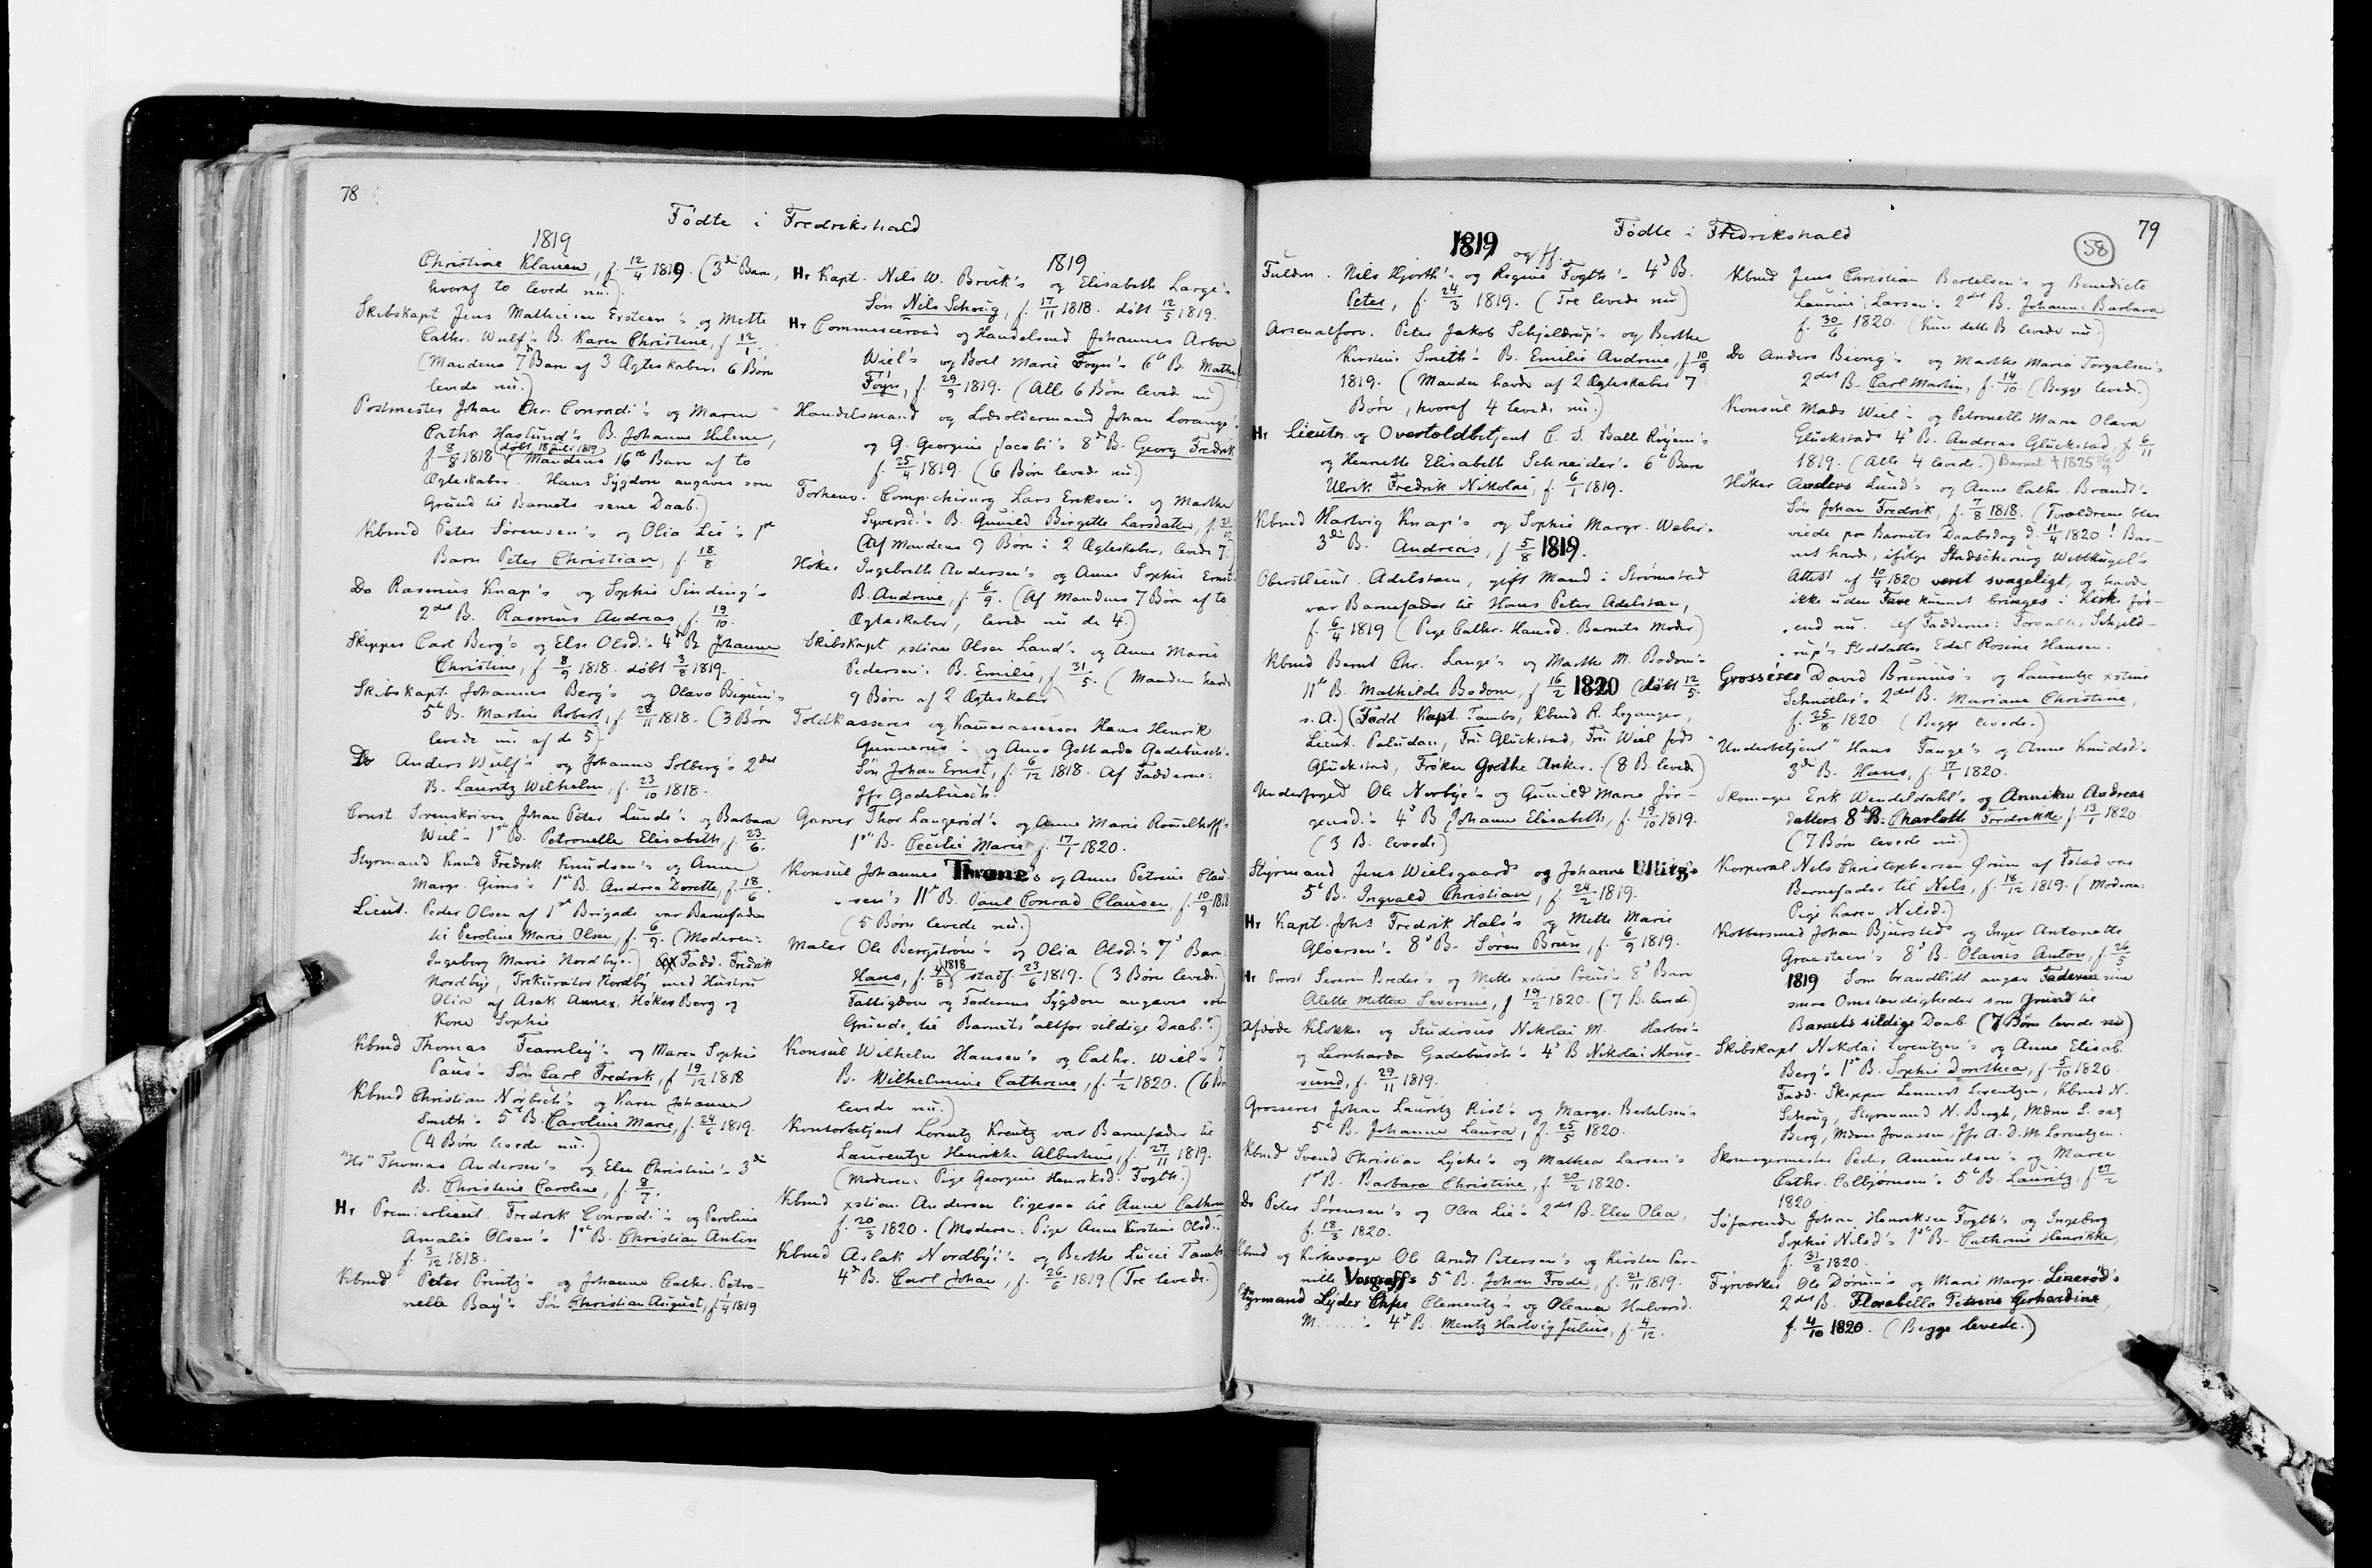 78
Födte i Fredrikshald
1819
Christine Klauen, f. 12/4 1819. (3die Barn,
hvoraf to levede nu.)
Skibskapt Jens Mathiesen Ersteen's og Mette
Cathr. Wulf's B. Karen Christine, f 12/1.
(Mandens 7de Barn af 3 Ægteskaber. 6 Börn
levede nu.)
Postmester Johan Chr. Conradi's og Maren
Cathr Haslund's B. Johanne Helene,
f 8/8 1818 (döbt 18 juli 1819) (Mandens 16de Barn af to
Ægteskaber. Hans Sygdom angaves som
Grund til Barnets sene Daab.)
Kbmd Peter Sörensen's og Olia Lie's 1ste
Barn Peter Christian, f 18/8.
Do Rasmus Knap's og Sophie Sinding's
2det B. Rasmus Andreas, f. 19/10.
Skipper Carl Berg's og Else Olsd.'s 4de B Johanne
Christine, f 8/9 1818. döbt 3/8 1819.
Skibskapt. Johannes Berg's og Olava Bigum's
5te B. Martin Robert, f 28/11 1818. (3 Börn
levede nu af de 5)
Do Anders Wulf's og Johanne Solberg's 2det
B. Lauritz Wilhelm, f. 23/10 1818.
Const. Sorenskriver Johan Peter Lunde's og Barbara
Wiel's 1ste B. Petronelle Elisabeth, f. 23/6.
Styrmand Knud Fredrik Knudsen's og Anne
Margr. Gims's 1ste B. Andrea Dorette, f. 18/6.
Lieut. Peder Olsen af 1ste Brigade var Barnefader
til Peroline Marie Olsen, f. 6/9. (Moderen:
Ingeborg Marie Nordbye.) Fadd. Fredrik
Nordbye, Prokurator Nordby med Hustru
Olia af Asak Annex, Höker Berg og
Kone Sophie
Kbmd Thomas Fearnley's og Maren Sophie
Paus's Sön Carl Fredrik, f 19/12 1818
Kbmd Christian Norbech's og Karen Johanne
Smith's 5te B. Caroline Marie, f. 24/6 1819.
(4 Börn levede nu.)
"Hr" Thomas Andersen's og Else Christine's 3die
B. Christine Caroline, f. 8/7.
Hr Premierlieut. Fredrik Conradi's og Peroline
Amalie Olsen's 1ste B. Christian Anton
f. 3/12 1818.
Kbmd Peter Printz's og Johanne Cathr. Petro-
nelle Bay's Sön Christian August, f 1/4 1819
1819
Hr Kapt. Nils W. Brock's og Elisabeth Large's
Sön Nils Schoug, f. 17/11 1818. döbt 12/5 1819.
Hr Commerceraad og Handelsmd Johannes Arbo
Wiel's og Boel Marie Foyn's 6te B. Mathe
Föyn, f. 29/9 1819. (Alle 6 Börn levede nu)
Handelsmand og Lodsoldermand Johan Lorange's
og G. Georgine Jacobi's 8de B. Georg Fredrik
f. 25/4 1819. (6 Börn levede nu.)
Forhenv. Comp. chirurg Lars Eriksen's og Marthe
Syversd.'s B. Gunild Birgitte Larsdatter, f. 21/10
(Af Mandens 9 Börn i 2 Ægteskaber, levede 7.)
Höker Ingebreth Andersen's og Anne Sophie Ernst's
B. Andrine, f. 6/9. (Af Mandens 7 Börn af to
Ægteskaber, levede nu de 4.)
Skibskapt xstian Olsen Land's og Anne Marie
Pedersen's B. Emilie, f 31/5. (Manden havde
9 Börn af 2 Ægteskaber)
Toldkasserer og Kammerassessor Hans Henrik
Gunnerus's og Anna Gotharda Gadebusch's
Sön Johan Ernst, f. 6/12 1818. Af Fadderne:
Jfr Gadebusch.
Garver Thor Langeröd's og Anne Marie Römelhoff's
1ste B. Cecilie Marie f. 17/1 1820.
Konsul Johannes Thrane's og Anne Petrine Clau-
sen's 11te B. Paul Conrad Clausen, f. 10/9 1818
(5 Börn levede nu.)
Maler Ole Bergström's og Olia Olsd.'s 7de Barn
Hans, f. 4/8 1818 stadf. 23/6 1819. (3 Börn levede.)
Fattigdom og Faderens Sygdom angaves som
Grunde til Barnets "altfor sildige Daab.")
Konsul Wilhelm Hansen's og Cathr. Wiel's 7
B. Wilhelmine Cathrine, f. 1/2 1820. (6 B
levede nu.)
Kontorbetjent Lorentz Kreutz var Barnefader til
Laurentze Henrikke Albertine, f. 27/11 1819.
(Moderen: Pige Georgine Henriksd. Fogth.)
Kbmd xstian Andersen ligesaa til Anne Cathrine
f. 20/3 1820. (Moderen. Pige Anne Kirstine Olsd.)
Kbmd Aslak Nordbye's og Berthe Lucie Tambs
4de B. Carl Johan, f. 26/6 1819 (Tre levede.)
79
58
Födte i Fredrikshald
1819 og ff.
Fuldm. Nils Hjorth's og Regine Fogth's 4de B.
Peter, f. 24/3 1819. (Tre levede nu)
Arsenalforv. Peter Jakob Schjeldrup's og Berthe
Kirstine Smith's B. Emilie Andrine, f 10/9
1819. (Manden havde af 2 Ægteskaber 7
Börn, hvoraf 4 levede nu.)
Hr Lieutn. og Overtoldbetjent C. S. Balle Röyem's
og Henrette Elisabeth Schneider's 6te Barn
Ulrik Fredrik Nikolai, f. 6/1 1819.
Kbmd Hartvig Knap's og Sophie Margr. Weber's
3die B. Andreas, f 5/8 1819.
Oberstlieut. Adelstaen, gift Mand i Strömstad
var Barnefader til Hans Peter Adelstaen,
f. 6/4 1819 (Pige Cathr. Hansd. Barnets Moder.)
Kbmd Bernt Chr. Lange's og Marthe M. Bodom's
11te B. Mathilde Bodom, f 16/2 1820 (döbt 12/5
s. A.) (Fadd Kapt. Tambs, Kbmd R. Leganger,
Lieut. Paludan, Fru Glückstad, Fru Wiel föds
Glückstad, Fröken Grethe Anker. (8 B. levede)
Underfoged Ole Norbye's og Gunild Marie Jör-
gensd.'s 4de B Johanne Elisabeth, f. 19/10 1819.
(3 B. levede)
Styrmand Jens Wielsgaard's og Johanne Ellitg's
5te B. Ingvald Christian, f. 24/2 1819.
Hr Kapt. Johs Fredrik Hals's og Mette Marie
Glöersen's 8de B. Sören Brun, f. 6/9 1819.
Hr Provst Severin Breder's og Mette xstine Preus's 8de Barn
Alette Mettea Severine, f 19/2 1820. (7 B. levede)
Afdöde Klokker og Studiosus Nikolai M. Harboe's
og Leonharda Gadebusch's 4de B Nikolai Mour-
sund, f. 29/11 1819.
Grosserer Johan Lauritz Rist's og Margr. Bertelsen's
5te B. Johanne Laura, f. 25/5 1820.
Kbmd Svend Christian Lyche's og Mathea Larsen's
1ste B. Barbara Christine, f. 20/2 1820.
Do Peter Sörensen's og Olea Lie's 2det B. Elen Olea,
f. 18/3 1820.
Kbmd og Kirkeværge Ole Arndt Petersen's og Kirsten Per-
nille Vosgraff's 5te B. Johan Frode, f. 21/11 1819.
Styrmand Lyder Clementz's og Oleana Halvorsd.
M.....'s 4de B. Mentz Hartvig Julius, f. 4/12.
Kbmd Jens Christian Bertelsen's og Benedicte
Laurine Larsen's 2det B. Johanne Barbara
f. 30/6 1820. (Kun dette B levede nu.)
Do Anders Biong's og Marthe Maria Torgalsen's
2det B. Carl Martin, f. 14/10. (Begge levede.)
Konsul Mads Wiel's og Petronelle Maren Olava
Glückstads 4de B. Andreas Glückstad, f. 6/11
1819. (Alle 4 levede.) Barnet † 1825
Höker Anders Lund's og Anne Cathr. Brandt's
Sön Johan Fredrik, f. 7/8 1818. (Forældrene blev
viede paa Barnets Daabsdag d. 11/4 1820! Bar-
net havde, ifölge Stadschirurg Wettkugel's
Attest af 10/4 1820 været svageligt, og havde
ikke uden Fare kunnet bringes i Kirke för-
end nu. Af Fadderne: Forvalter Schjeld-
rup's Steddatter Edel Rosine Hansen.
Grosserer David Brunius's og Laurentze xstine
Schnitler's 2det B. Mariane Christine,
f. 25/8 1820 (Begge levede.)
Underbetjent Hans Tange's og Anne Knudsd.'s
3die B. Hans, f. 17/1 1820.
Skomager Erik Wendeldahl's og Anniken Andreas
datters 8de B. Charlotte Fredrikke f. 13/1 1820.
(7 Börn levede nu.)
Korporal Nels Christophersen Ørum af Idd var
Barnefader til Nels, f. 18/12 1819. (Moderen:
Pige Karen Nilsd.)
Kobbersmed Johan Bjursted's og Inger Antonette
Graasteen's 8de B. Olavus Anton, f. 26/5
1819 Som brandlidt angav Faderen sine
smaa Omstændigheder som Grund til
Barnets sildige Daab (7 Börn levede nu)
Skibskapt Nikolai Lorentzen's og Anne Elisab.
Berg's 1ste B. Sophie Dorothea, f. 5/10 1820.
Fadd. Skipper Lennert Lorentzen, Kbmd N.
Schoug, Styrmand N. Bergh, Mdme L. sag
Berg, Mdme Jonassen, Jfr A. D. M. Lorentzen.
Skomagermester Peder Amundsen's og Maren
Cathr. Colbjörnsen's 5te B. Lauritz, f 27/2
1820
Söfarende Johan Henriksen Fogth's og Ingeborg
Sophie Nilsd's 1ste B. Cathrine Henrikke,
f. 31/8 1820.
Fyrværker Ole Dörum's og Marie Margr. Lineröd's
2det B. Florabella Petrine Gerhardine,
f. 4/10 1820. (Begge levede.)